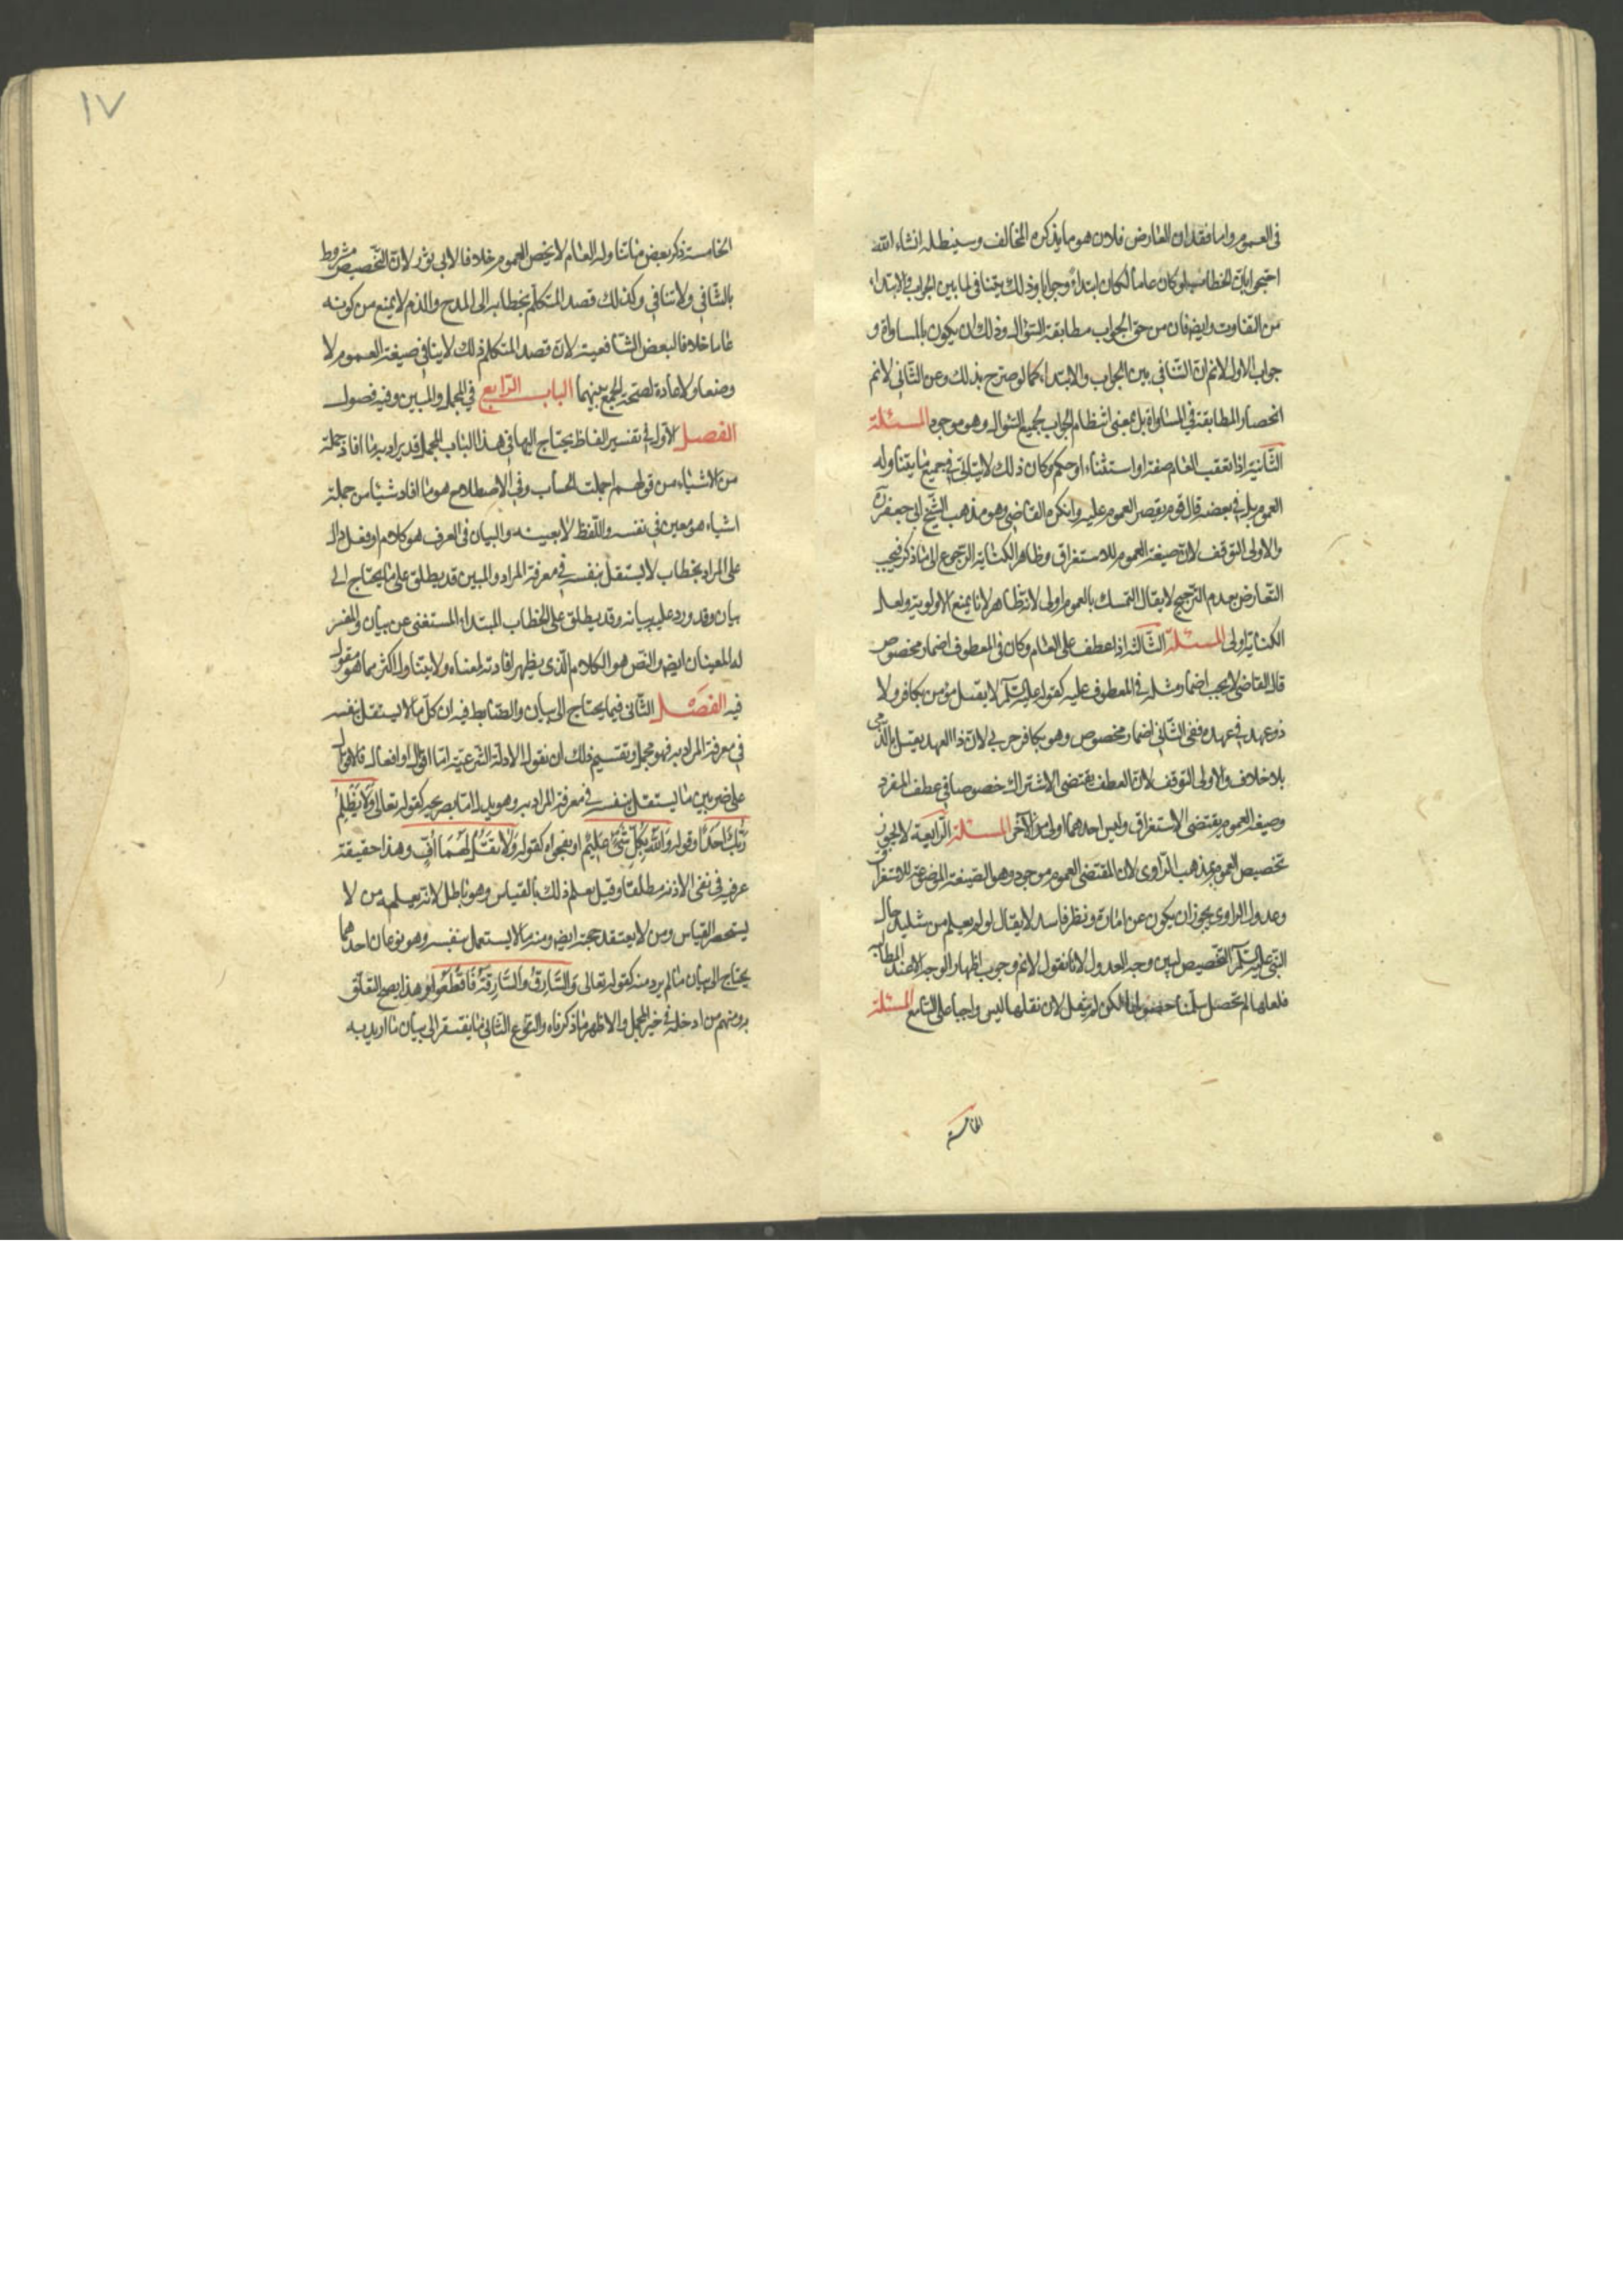 فى العموم واما فقدان العارض فلان هو ما يذكره المخالف وسنبطله انشاء الله
احتجوا بان الخطاب لو كان عاما لكان ابتداء وجوابا وذلك يتنافى لما بين الجواب والابتداء
من التفاوت وايضا فان من حق الجواب مطابقة السؤال وذلك ان يكون بالمساواة و
جواب الاول لانم ان التنافى بين الجواب والابتداء كما لو صرح بذلك وعن الثانى لانم
انحصار المطابقة فى المساواة بل بمعنى انتظام الجواب بجميع السؤال وهو موجود المسئلة
الثانية اذا تعقب العام صفة او استثناء او حكم وكان ذلك لا يتاتى فى جميع ما يتناوله
العموم بل فى بعضه قال قوم يقصر العموم عليه وانكره القاضى وهو مذهب الشيخ ابى جعفر ره
والاولى التوقف لان صيغة العموم للاستغراق وظاهر الكناية الرجوع الى ما ذكر فيجب
التعارض بعدم الترجيح لا يقال التمسك بالعموم اولى لانه ظاهر لانا نمنع الاولوية ولعل
الكناية اولى المسئلة الثالثة اذا عطف على العام وكان فى المعطوف اضمار مخصوص
قال القاضى لا يجب اضمار مثله فى المعطوف عليه كقوله عليه السلم لا يقتل مؤمن بكافر ولا
ذو عهد فى عهده ففى الثانى اضمار مخصوص وهو بكافر حربى لان ذا العهد يقتل بالذمى
بلا خلاف والاولى التوقف لان العطف يقتضى الاشتراك خصوصا فى عطف المفرد
وصيغة العموم يقتضى الاستغراق وليس احدهما اولى من الآخر المسئلة الرابعة لا يجوز
تخصيص العموم بمذهب الراوى لان المقتضى العموم موجود وهو الصيغة الموضوعة للاستغراق
وعدول الراوى يجوز ان يكون عن امارة ونظر فاسد لا يقال لو لم يعلم من شاهد حال
النبى عليه السلم التخصيص لبين وجه العدول لانا نقول لانم وجوب اظهار الوجه الا عند المطالبة
فلعلها لم تحصل سلمنا حصولها لكن لم ينقل لان نقلها ليس واجبا على السامع المسئلة
الخامسة
١٧
الخامسة ذكر بعض ما تناوله العام لا يخص العموم خلافا لابى ثور لان التخصيص مشروط
بالتنافى ولا تنافى وكذلك قصد المتكلم بخطابه الى المدح والذم لا يمنع من كونه
عاما خلافا لبعض الشافعية لان قصد المتكلم ذلك لا ينافى صيغة العموم لا
وضعا ولا عادة لصحة الجمع بينهما الباب الرابع فى المجمل والمبين وفيه فصول
الفصل الاول فى تفسير الفاظ يحتاج اليها فى هذا الباب المجمل قد يراد به ما افاد جملة
من الاشياء من قولهم اجملت الحساب وفى الاصطلاح هو ما افاد شيئا من جملة
اشياء هو معين فى نفسه واللفظ لا يعينه والبيان فى العرف هو كلام او فعل دال
على المراد بخطاب لا يستقل بنفسه فى معرفة المراد والمبين قد يطلق على ما يحتاج الى
بيان وقد ورد عليه بيانه وقد يطلق على الخطاب المبتداء المستغنى عن بيان والمفسر
له المعنيان ايضا والنص هو الكلام الذى يظهر افادته لمعناه ولا يتناول اكثر مما هو مقول
فيه الفصل الثانى فيما يحتاج الى بيان والضابط فيه ان كل ما لا يستقل بنفسه
فى معرفة المراد به فهو مجمل وتقسيم ذلك ان نقول الادلة الشرعية اما اقوال او افعال فالاقوال
على ضربين ما يستقل بنفسه فى معرفة المراد به وهو يدل اما بصريحه كقوله تعالى وَلَا يَظْلِمُ
رَبُّكَ اَحَدًا وقوله وَاللّٰهُ بِكُلِّ شَىْءٍ عَلِيْم او بفحواه كقوله وَلَا تَقُلْ لَهُمَا اُفٍّ وهذا حقيقة
عرفية فى نفى الاذى مطلقا وقيل بعلم ذلك بالقياس وهو باطل لانه يعلمه من لا
يستحضر القياس ومن لا يعتقد حجة ايضا ومنه ما لا يستعمل بنفسه وهو نوعان احدهما
يحتاج الى بيان ما لم يرد منه كقوله تعالى وَالسَّارِقُ وَالسَّارِقَةُ فَاقْطَعُوا وهذا يصح التعلق
به ومنهم من ادخله فى خير المجمل والاظهر ما ذكرناه والنوع الثانى ما يفتقر الى بيان ما اريد به